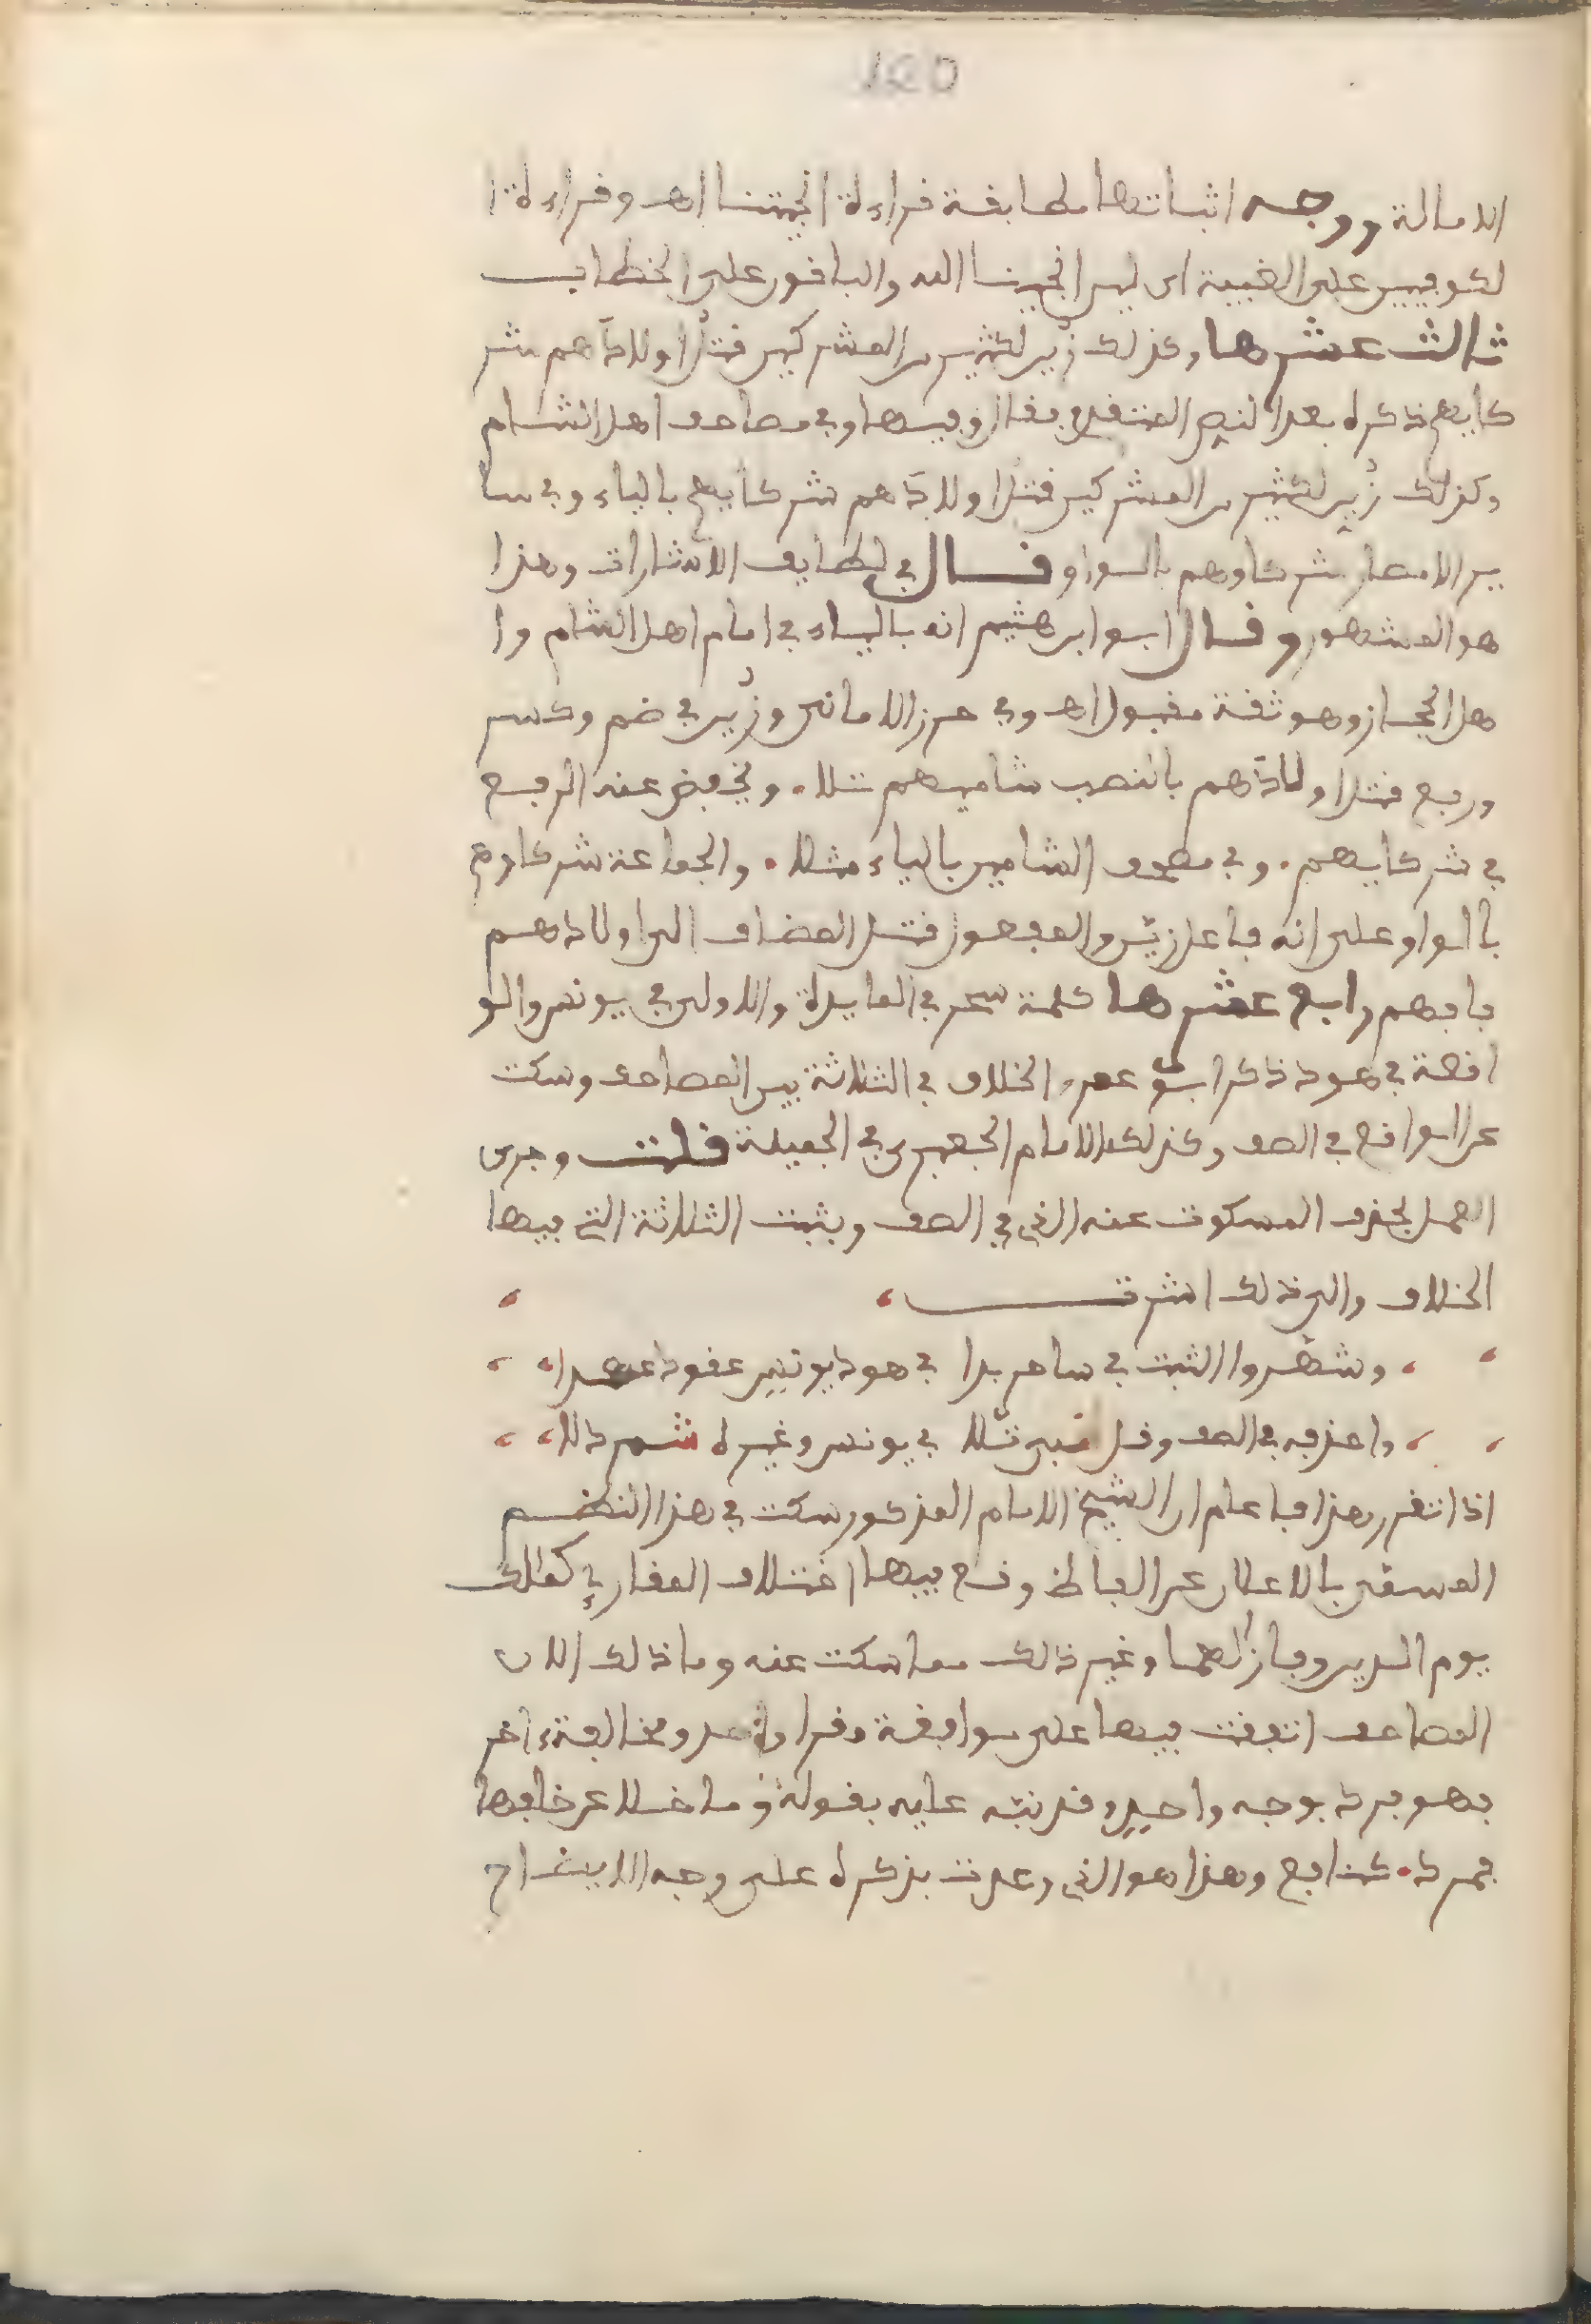 الامالة ووجه اثباتها مطابقة قراءة انجيتنا اهـ وقراءة ا
لكوفيين على الغيبة اى ليس انجينا الله والباقون على الخطاب
ثالث عشرها وكذلك زُين لكثير من المشركين قتلُ اولادَهم شر
كايهم ذكره بعد النص المتقدم فقال وفيها وفي مصاحف اهل الشام
وكذلك زُين لكثير من المشركين قتلُ اولادَهم شركايهم بالياء وفي سا
ير الامصار شركاوهم بالواو قال في لطايف الاشارات وهذا
هو المشهور وقال ابو ابرهشيم انه بالياء في امام اهل الشام وا
هل الحجاز وهو ثقة مقبول اهـ وفي حرز الامانى وزُين في ضم وكسر
ورفع قتل اولادَهم بالنصب شاميهم تلا. ويخفض عنه الرفع
في شركايهم. وفي مصحف الشامين بالياء مثلا. والجماعة شركاوهم
بالواو على انه فاعل زيّن والمفعول قتل المضاف الى اولادهم
فافهم رابع عشرها كلمة سحر في المايدة والاولى في يونس والو
اقعة في هود ذكر ابو عمرو الخلاف في الثلاثة بين المصاحف وسكت
عن الواقع في الصف وكذلك الامام الجعبرى في الجميلة قلت وجرى
العمل بحذف المسكوت عنه الذي في الصف وبثبت الثلاثة التي فيها
الخلاف والى ذلك اشرت
وشهّروا الثبت في ساحر بدا في هود يونس عقود عهدا
واحذفه في الصف وقل نبى تلا في يونس وغيره شمر دلا
اذا تقرر هذا فاعلم ان الشيخ الامام المذكور سكت في هذا النظم
المسمّى بالاعلان عن الفاظ وقع فيها اختلاف المقارئ كملك
يوم الدين وفازلهما وغير ذلك مما سكت عنه وما ذلك الا ن
المصاحف اتفقت فيها على موافقة مقرا واحد ومخالفة ءاخر
فهو فرد بوجه واحدٍ وقد نبّه عليه بقوله وُ ما خلا عن خلفها
فمرد. كنافع وهذا هو الذي وعدت بذكره على وجه الايضاح